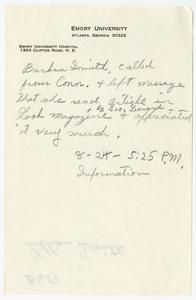 EMORY UNIVERSITY
ATLANTA, GEORGIA 30322
EMORY UNIVERSITY HOSPITAL
1364 CLIFTON ROAD, N. E.
Barbra Smith, called
from Conn. & left message
that she read article in
by Geo. Leonard
Look Magazine & appreciated
it very much.
8-24- 5:25 P.M.
Information